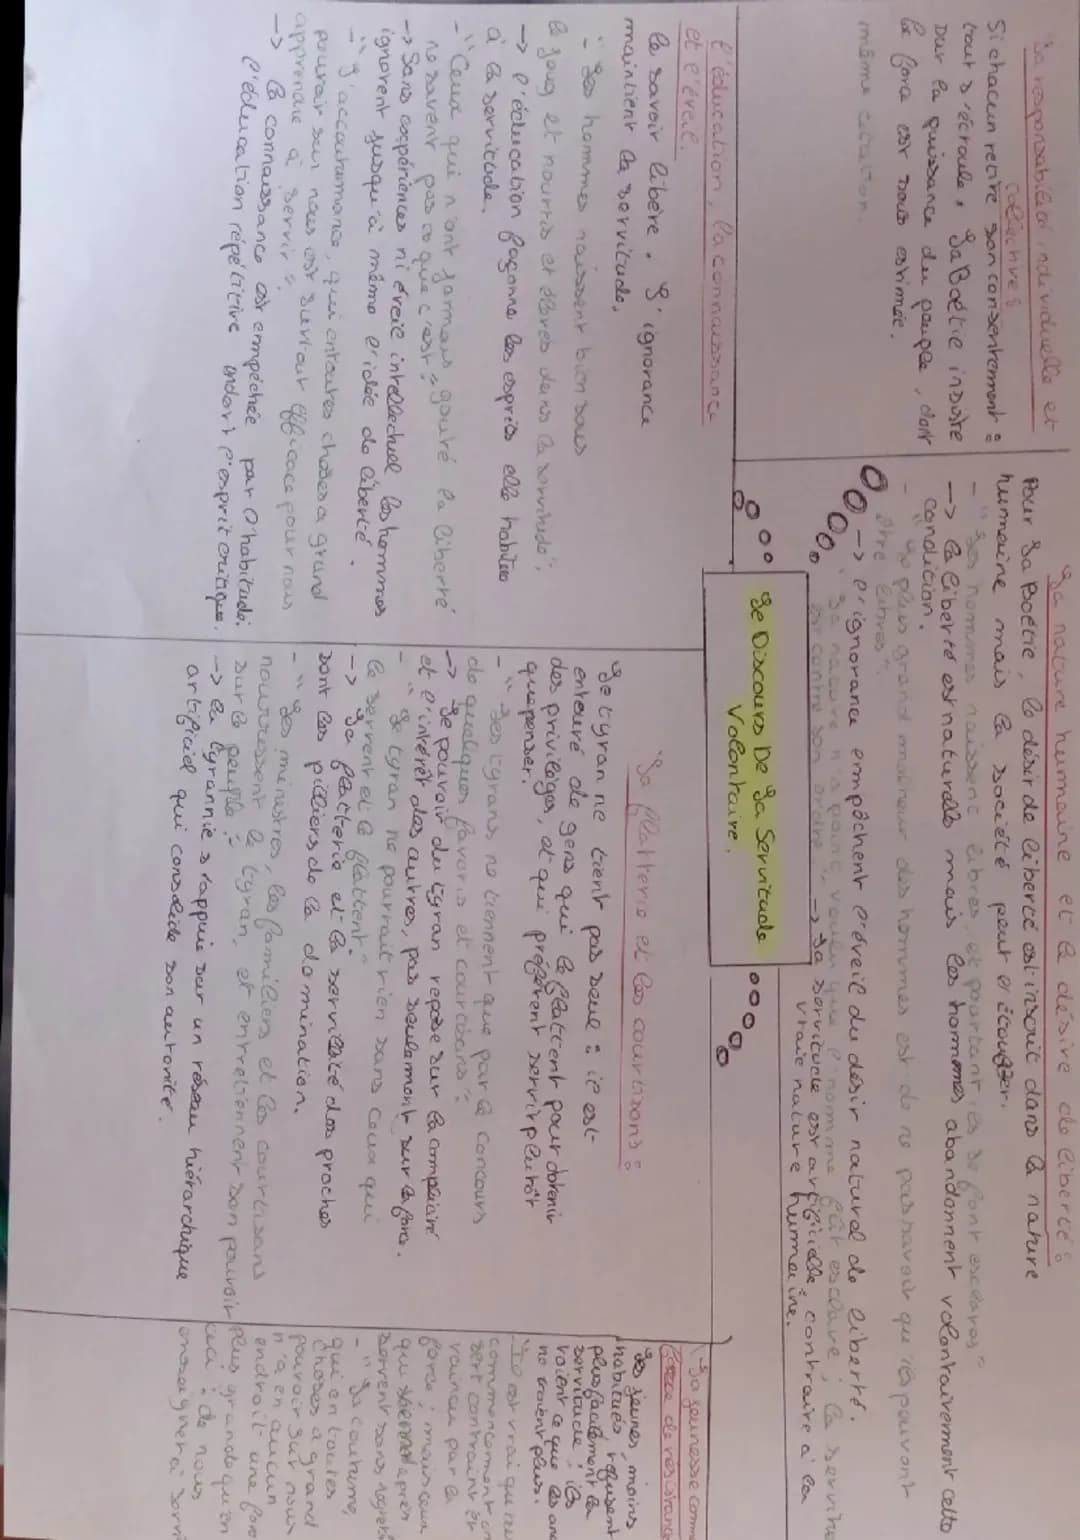 La responsabilité individuelle et
collective :
Si chacun retire son consentement :
tout s'écroule, La Boétie insiste
sur la puissance du peuple, dont
la force est sous estimée.
même citation.
La nature humaine et le désire de liberté :
Pour La Boétie, le désir de liberté est inscrit dans la nature
humaine mais la société peut et étouffer.
- "Les hommes naissent libres, et pourtant ils se font esclaves"
-> la liberté est naturelle mais les hommes abandonnent volontairement cette
condition.
- "Le plus grand malheur des hommes est de ne pas savoir qu'ils peuvent
être libres"
-> l'ignorance empêchent l'éveil du désir naturel de liberté.
"La nature n'a point voulu que l'homme fût esclave ; la servitude
est contre son ordre" -> La servitude est artificielle, contraire à la
vraie nature humaine.
Le Discours De La Servitude
Volontaire.
L'éducation, la connaissance
et l'éveil.
Le savoir libère. L'ignorance
maintient la servitude,
- "Les hommes naissent bien sous
le joug et nourris et élevés dans la servitude".
-> l'éducation façonne les esprits elle habitue
à la servitude.
- "Ceux qui n'ont jamais goûté la liberté
ne savent pas ce que c'est"
-> Sans expériences ni éveil intellectuel les hommes
ignorent jusqu'à même l'idée de liberté.
- "L'accoutumance, qui en toutes choses a grand
pouvoir sur nous est surtout efficace pour nous
apprendre à servir".
-> la connaissance est empêchée par l'habitude :
l'éducation répétitive endort l'esprit critique.
"La flatterie et les courtisans :
Le tyran ne tient pas seul : il est
entouré de gens qui le flattent pour obtenir
des privilèges, et qui préfèrent servir plutôt
que penser.
- "Les tyrans ne tiennent que par le concours
de quelques favoris et courtisans".
-> Le pouvoir du tyran repose sur la complicité
et l'intérêt des autres, pas seulement sur la force.
- "Le tyran ne pourrait rien sans ceux qui
le servent et le flattent"
-> La flatterie et la servilité des proches
sont les pilliers de la domination.
- "Les ministres, les familiers et les courtisans
nourrissent le tyran, et entretiennent son pouvoir
sur le peuple".
-> la tyrannie s'appuie sur un réseau hiérarchique
artificiel qui consolide son autorité.
La jeunesse comme
force de résistance
Les jeunes, moins
habitués, refusent
plus facilement la
servitude ; ils
voient ce que les anc
ne voient plus.
"Il est vrai qu'au
commencement on
sert contraint et
vaincu par la
force ; mais ceux
qui viennent après
servent sans regret
- "La coutume,
qui en toutes
choses a grand
pouvoir sur nous
n'a en aucun
endroit une force
plus grande qu'en
ceci : de nous
enseigner à servir